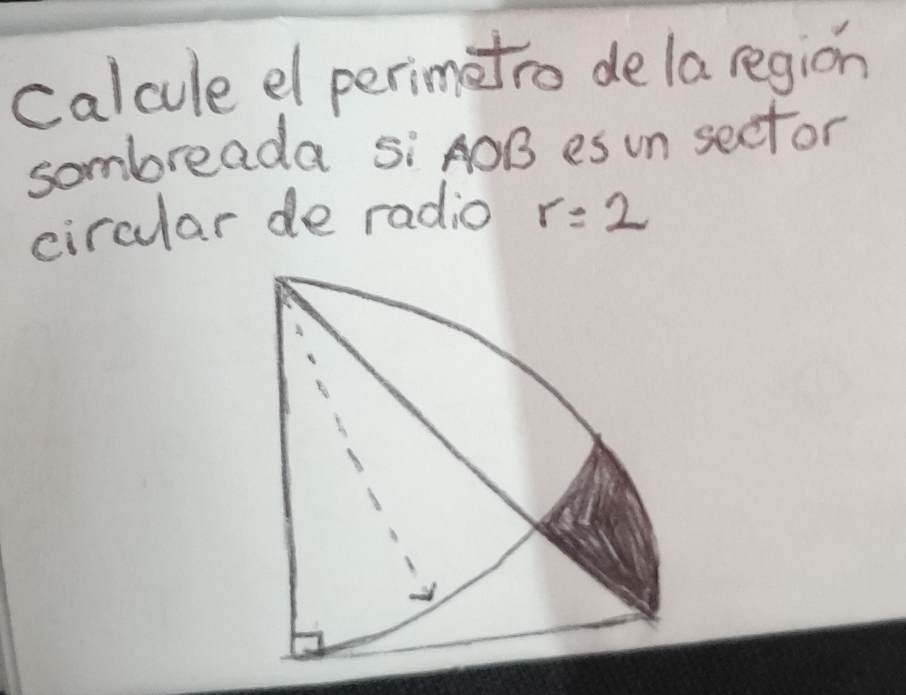 Calcule el perimetro de la región
sombreada si AOB es un sector
circular de radio r=2